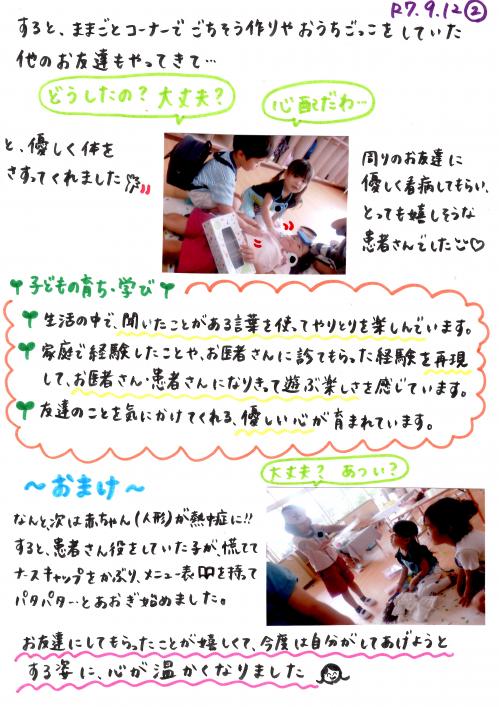 R7.9.12②
すると、ままごとコーナーでごちそう作りやおうちごっこをしていた
他のお友達もやってきて…
どうしたの？大丈夫？
心配だわ…
と、優しく体を
さすってくれました
周りのお友達に
優しく看病してもらい、
とっても嬉しそうな
患者さんでした♡
子どもの育ち・学び
生活の中で、聞いたことがある言葉を使ってやりとりを楽しんでいます。
家庭で経験したことや、お医者さんに診てもらった経験を再現
して、お医者さん・患者さんになりきって遊ぶ楽しさを感じています。
友達のことを気にかけてくれる、優しい心が育まれています。
大丈夫？ あつい？
～おまけ～
なんと、次は赤ちゃん(人形)が熱中症に!!
すると、患者さん役をしていた子が、慌てて
ナースキャップをかぶり、メニュー表を持って
パタパタ…とあおぎ始めました。
お友達にしてもらったことが嬉しくて、今度は自分がしてあげようと
する姿に、心が温かくなりました